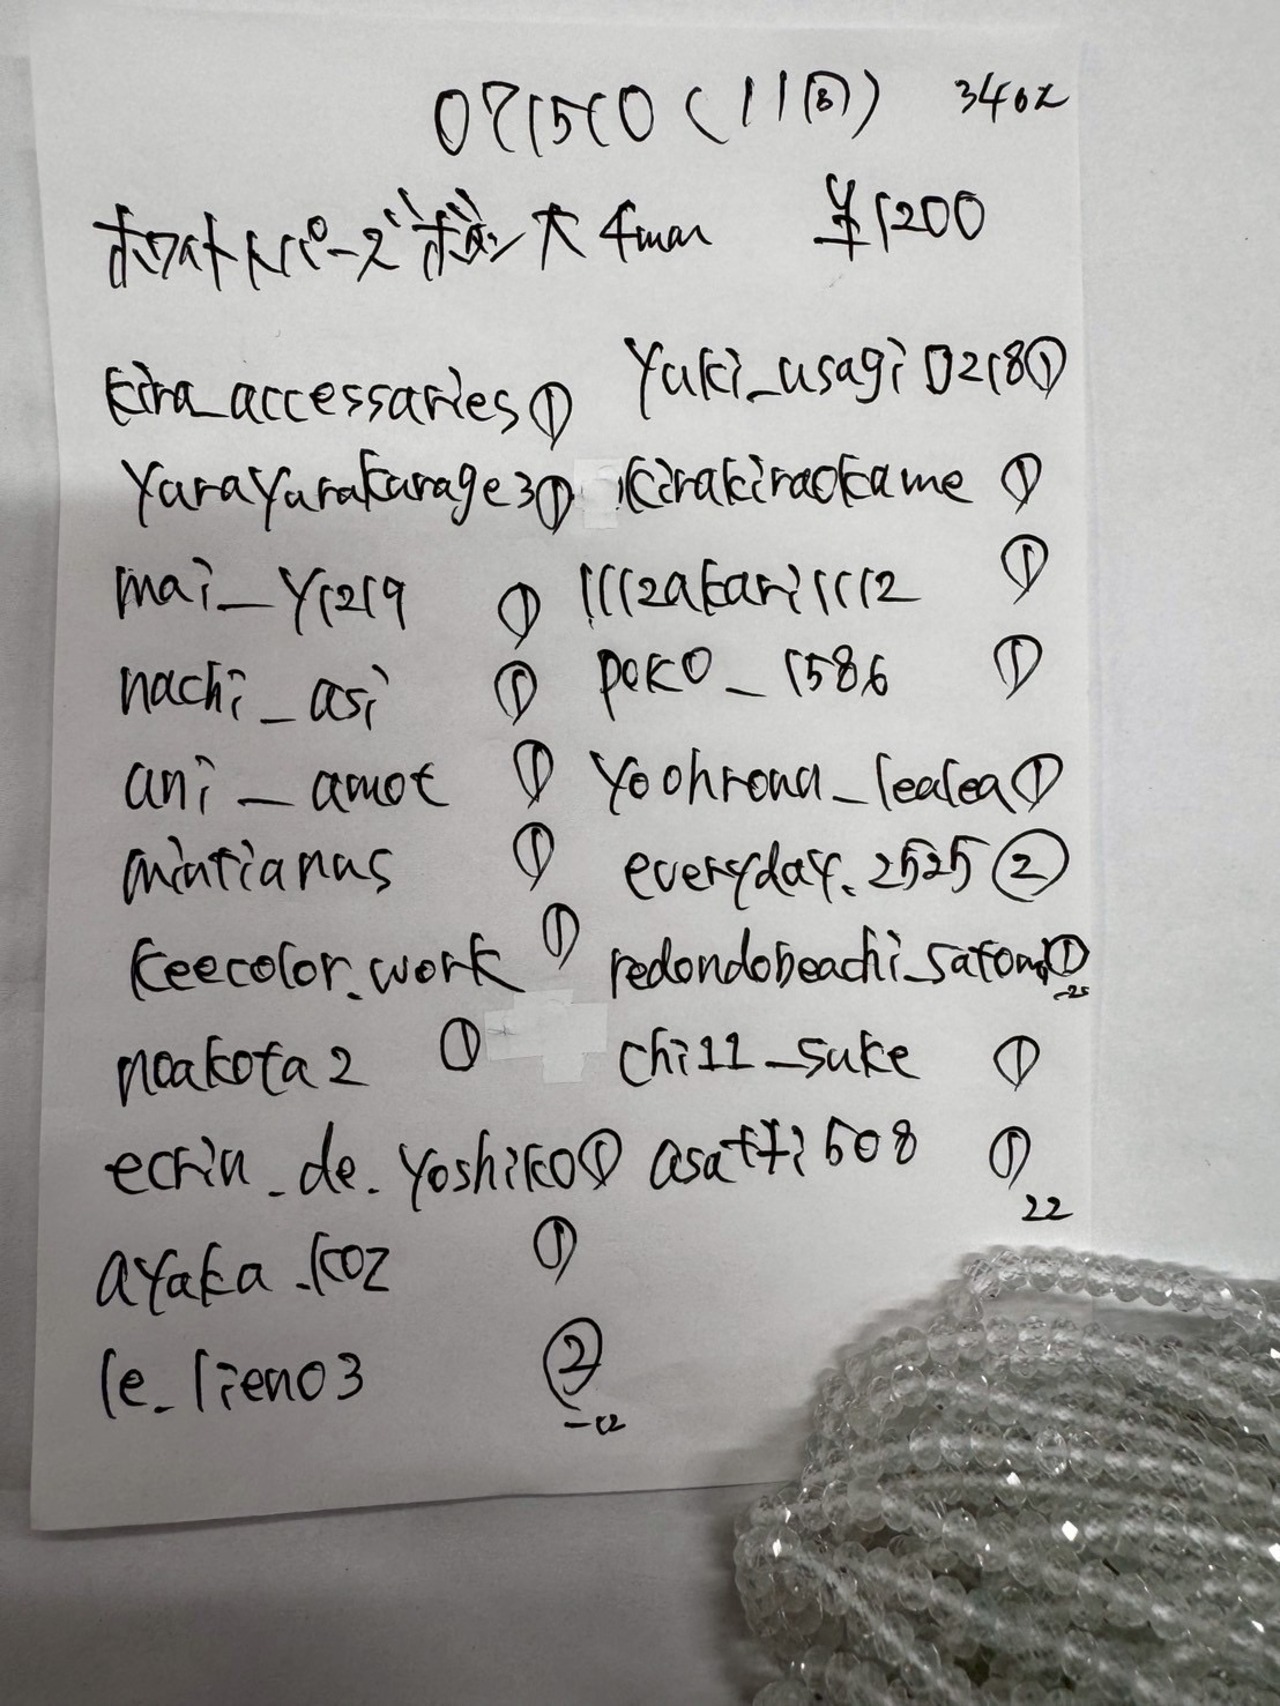 071510 (11回) 340z
ホワイトトパーズ ボタン大 4mm ¥1200
kira_accessaries ①
yurayurakurage3 ①
mai_y1219 ①
nachi_asi ①
ani_amot ①
mintianus ①
keecolor.work ①
noakota2 ①
ecrin_de_yoshiko ①
ayaka.koz ①
le_lien03 ②
-12
yuki_usagi0218 ①
kirakiraokame ①
1112akari1112 ①
poko_1586 ①
yoohrona_lealea ①
everyday.2525 ②
redondobeachi_satomi ①
-25
chi11_suke ①
asatti508 ①
22